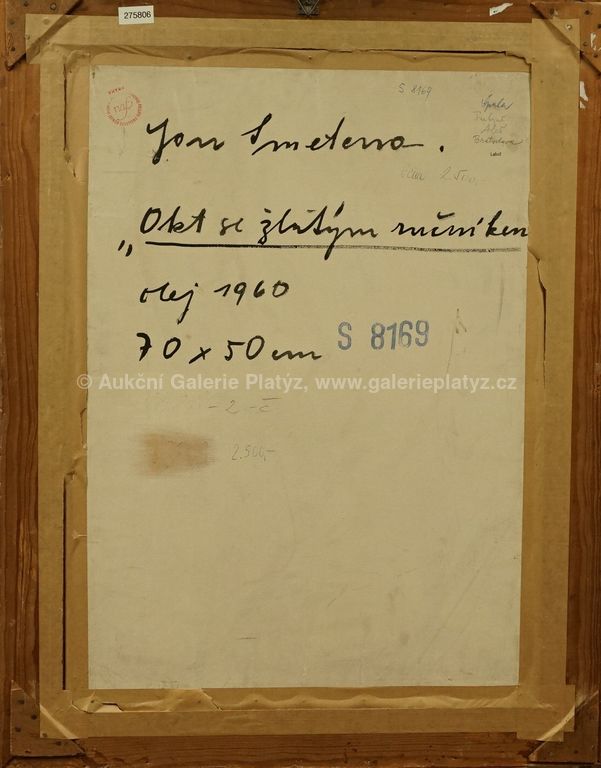 275806
S 8169
Labuť
Jan Smetana.
cena 2.500,-
„Akt se žlutým ručníkem
olej 1960
70 x 50 cm
S 8169
© Aukční Galerie Platýz, www.galerieplatyz.cz
- 2 - č
2.500,-